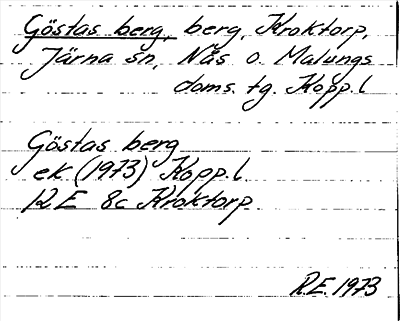 Göstas berg, berg, Kroktorp,
Järna sn, Nås o. Malungs
doms. tg. Kopp. l
Göstas berg
ek (1973) Kopp. l.
12 E 8c Kroktorp
R.E. 1973